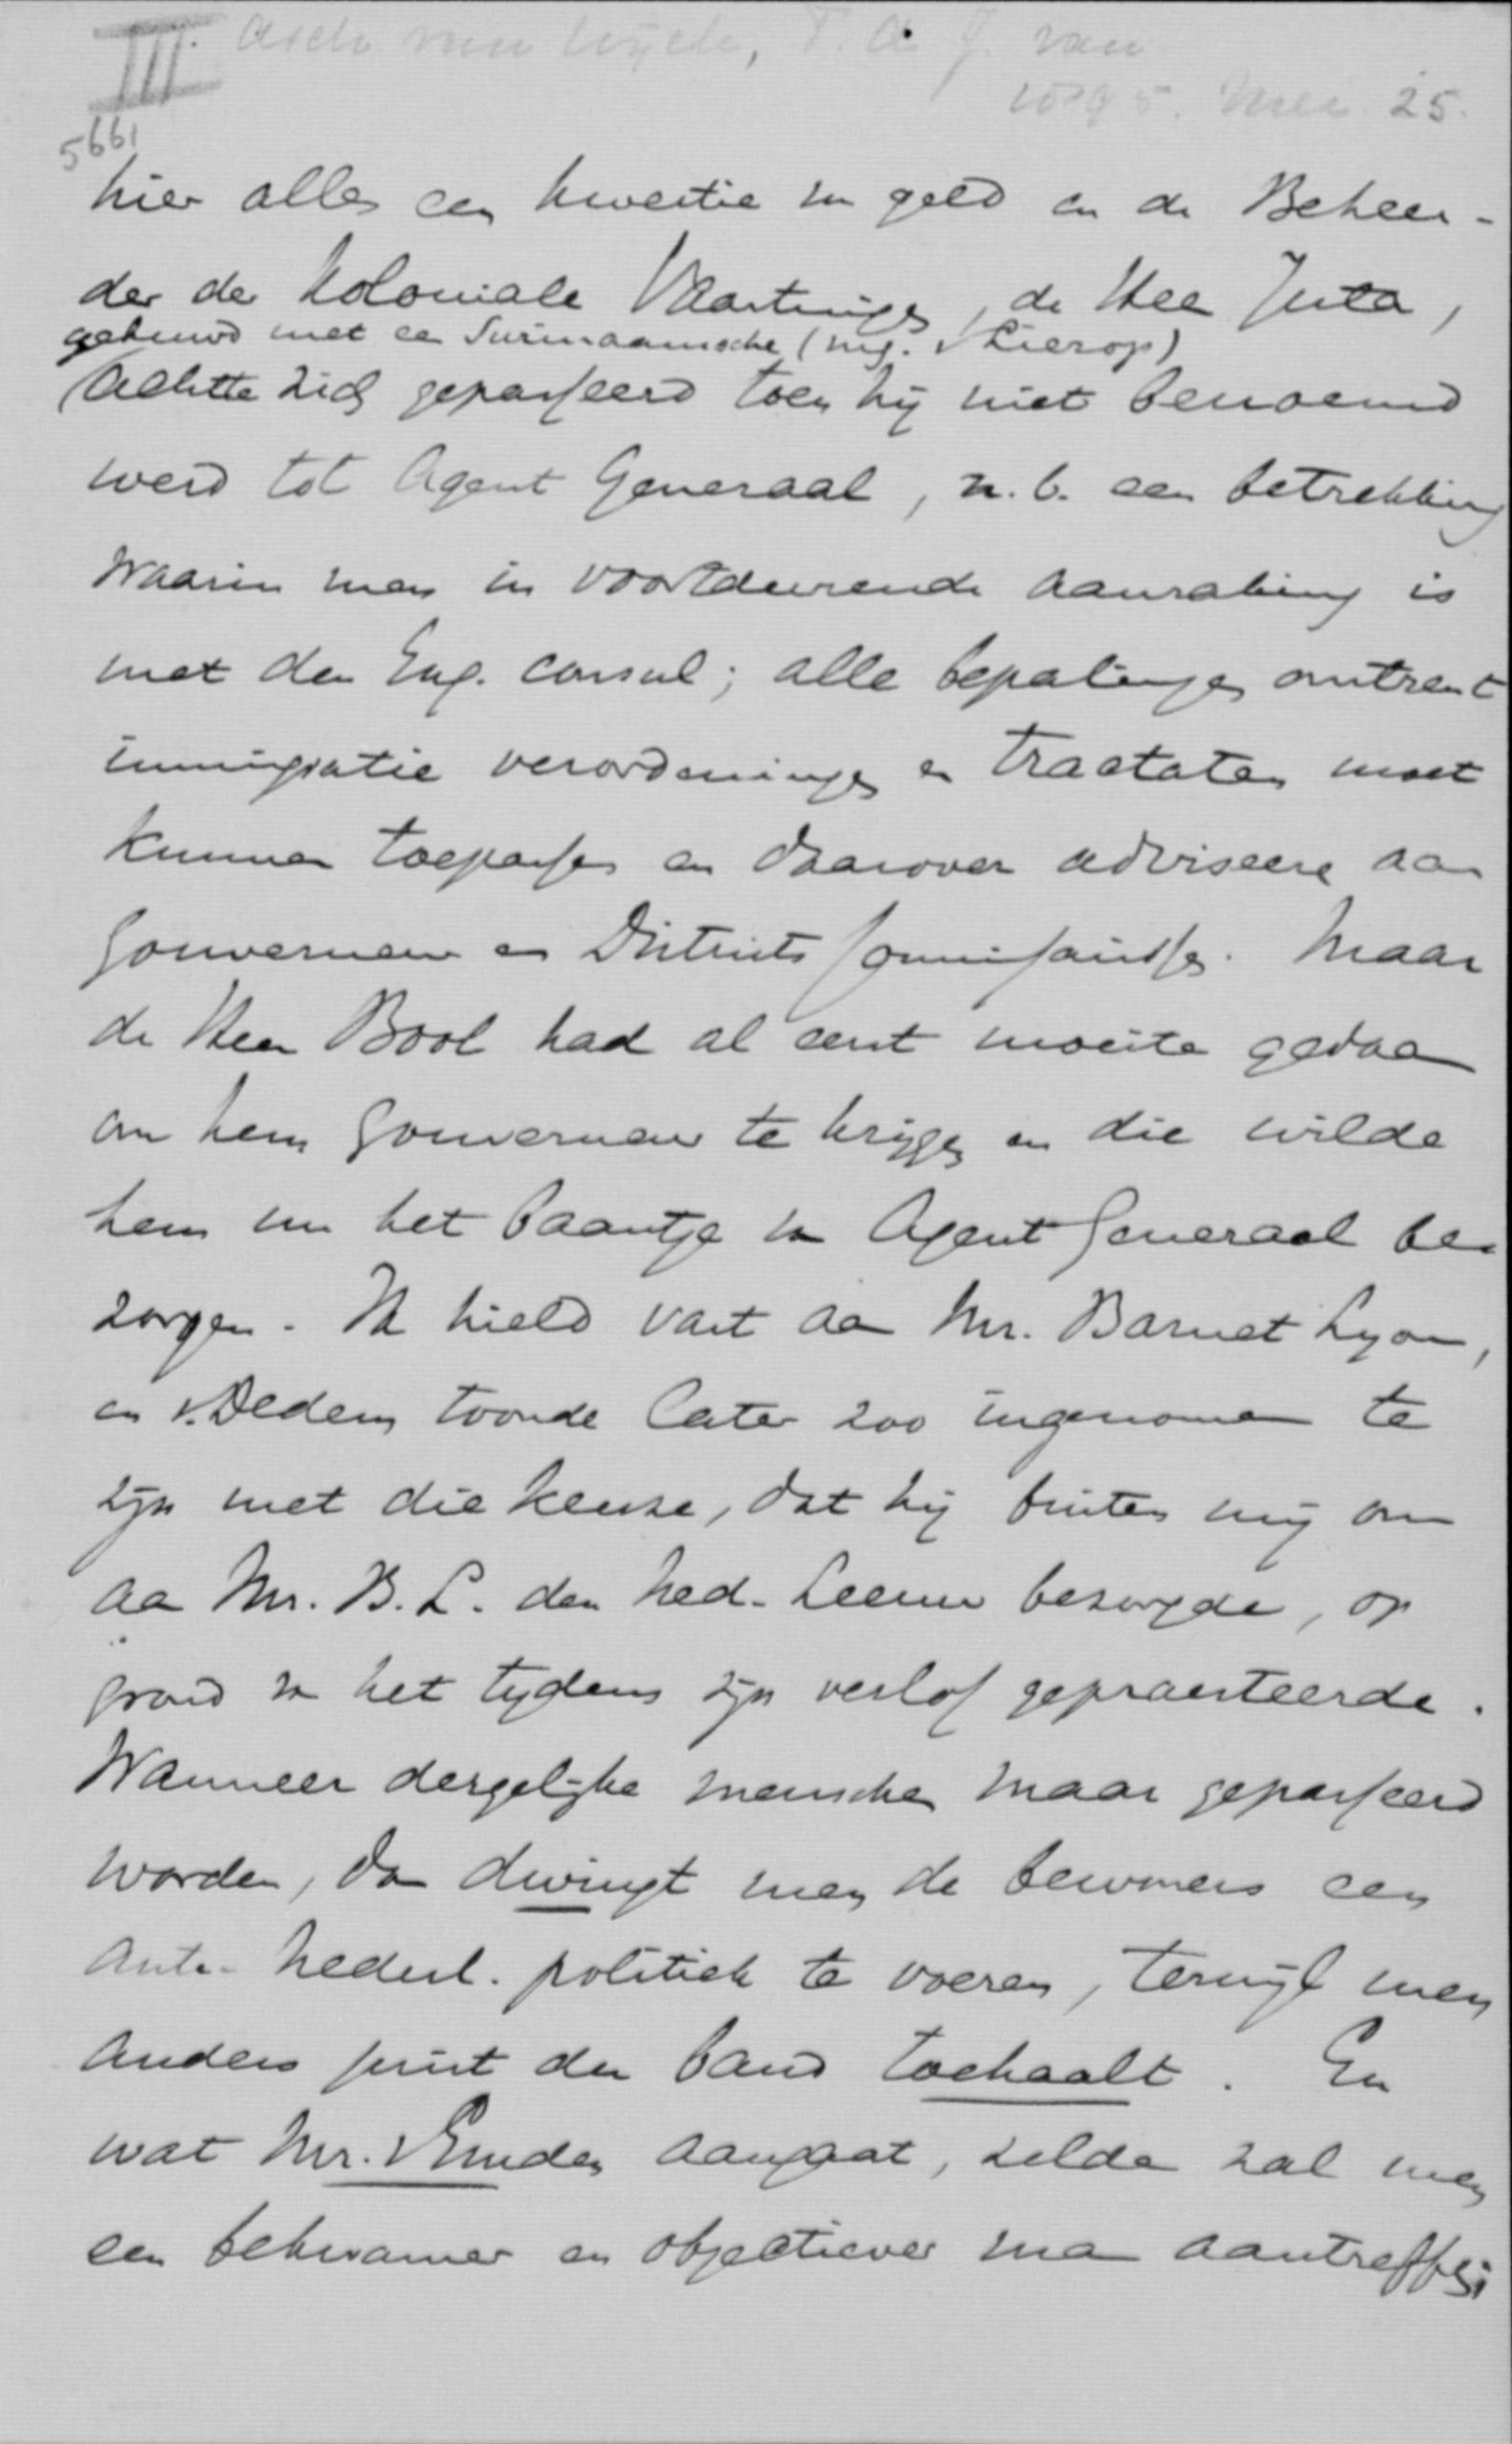 III. Asch van Wijck, T. A. J. van
1895. Mei. 25.
5661
hier alles een kwestie v geld en de Beheer-
der der Koloniale Vaartuigen, de Heer Juta,
gehuwd met een Surinaamsche (mej. v Lierop)
(achtte zich gepasseerd toen hij niet benoemd
werd tot Agent Generaal, n.b. een betrekking
waarin men in voortdurende aanraking is
met den Eng. consul; alle bepalingen omtrent
immigratie verordeningen en tractaten moet
kunnen toepassen en daarover adviseere aan
Gouverneur en Districts Commissarissen. Maar
de Heer Bool had al eens moeite gedaan
om hem Gouverneur te krijgen en die wilde
hem nu het baantje v Agent Generaal be-
zorgen. Ik hield vast aan Mr. Barnet Lyon,
en v. Dedem toonde later zoo ingenomen te
zijn met die keuze, dat hij buiten mij om
aan Mr. B. L. den Ned. Leeuw bezorgde, op
grond v het tijdens zijn verlof gepraesteerde.
Wanneer dergelijke menschen maar gepasseerd
worden, dan dwingt men de bewoners een
Anti-Nederl. politiek te voeren, terwijl men
anders juist den band toehaalt. En
wat Mr. v Emden aangaat, zelden zal men
een bekwamer en objectiever man aantreffen;